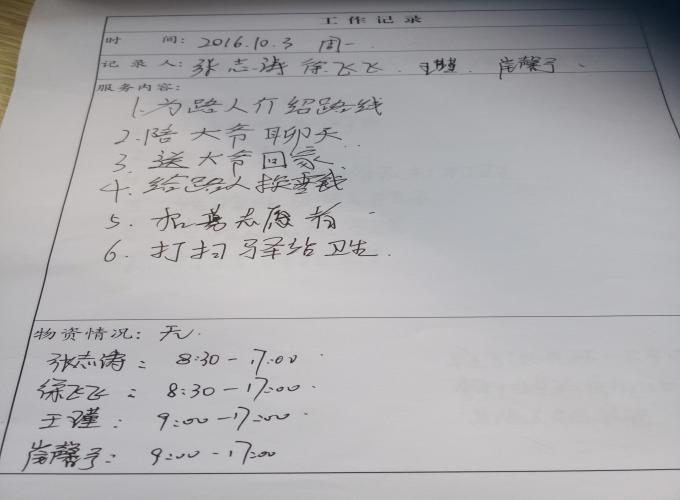 工作记录
时 间: 2016.10.3 周一.
记录人: 张志涛 徐飞飞. 王瑾.
服务内容:
1.为路人介绍路线
2.陪大爷聊天.
3.送大爷回家.
4.给路人换零钱
5.招募志愿者
6.打扫驿站卫生.
物资情况: 无.
张志涛: 8:30-17:00
徐飞飞: 8:30-17:00.
王瑾: 9:00-17:00
9:00-17:00